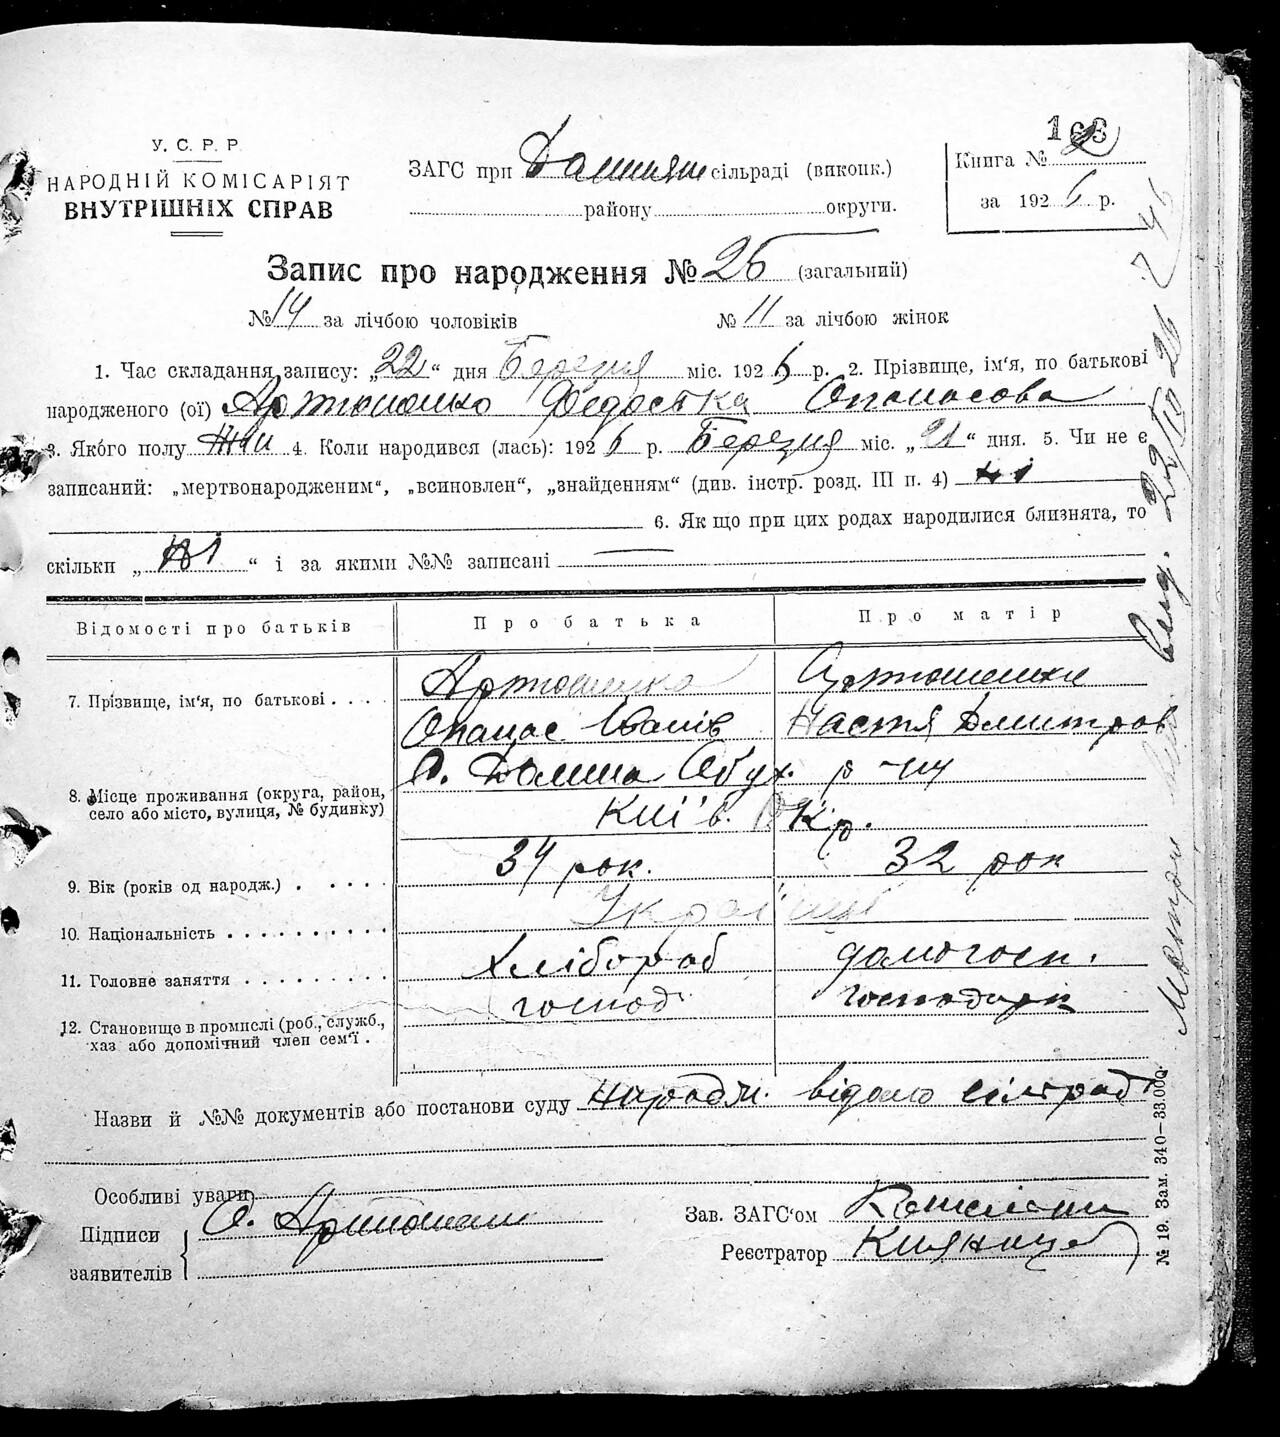 163
У. С. Р. Р.
НАРОДНІЙ КОМІСАРІЯТ
ВНУТРІШНІХ СПРАВ
ЗАГС при сільраді (виконк.)
району округи.
Книга № 2
за 1926 р.
Запис про народження № 25 (загальний)
№ 14 за лічбою чоловіків № 11 за лічбою жінок
1. Час складання запису: „22“ дня Березня міс. 1926 р. 2. Прізвище, ім'я, по батькові
народженого (ої) Федоська Опанасова
3. Якого полу жін 4. Коли народився (лась): 1926 р. Березня міс. „21“ дня. 5. Чи не є
записаний: „мертвонародженим“, „всиновлен“, „знайденням“ (див. інстр. розд. III п. 4) ні
6. Як що при цих родах народилися близнята, то
скільки „ ні “ і за якими №№ записані —
Відомості про батьків Про батька Про матір
7. Прізвище, ім'я, по батькові . . . .
Опанас Іванів Настя Дмитров
8. Місце проживання (округа, район,
село або місто, вулиця, № будинку)
с. Долина Обух. р-ну
Київ. Окр.
9. Вік (років од народж.) . . . . . 34 рок. 32 рок
10. Національність . . . . . . . . . . Українці
11. Головне заняття . . . . . . . . Хлібороб домогосп.
12. Становище в промислі (роб., служб.,
хаз або допомічний член сем'ї . господ. господарк
Назви й №№ документів або постанови суду народж. відомо сільрад
Особливі уваги
Підписи
заявителів
Зав. ЗАГС'ом
Реєстратор Княниця
№ 19. Зам. 340—33.000.